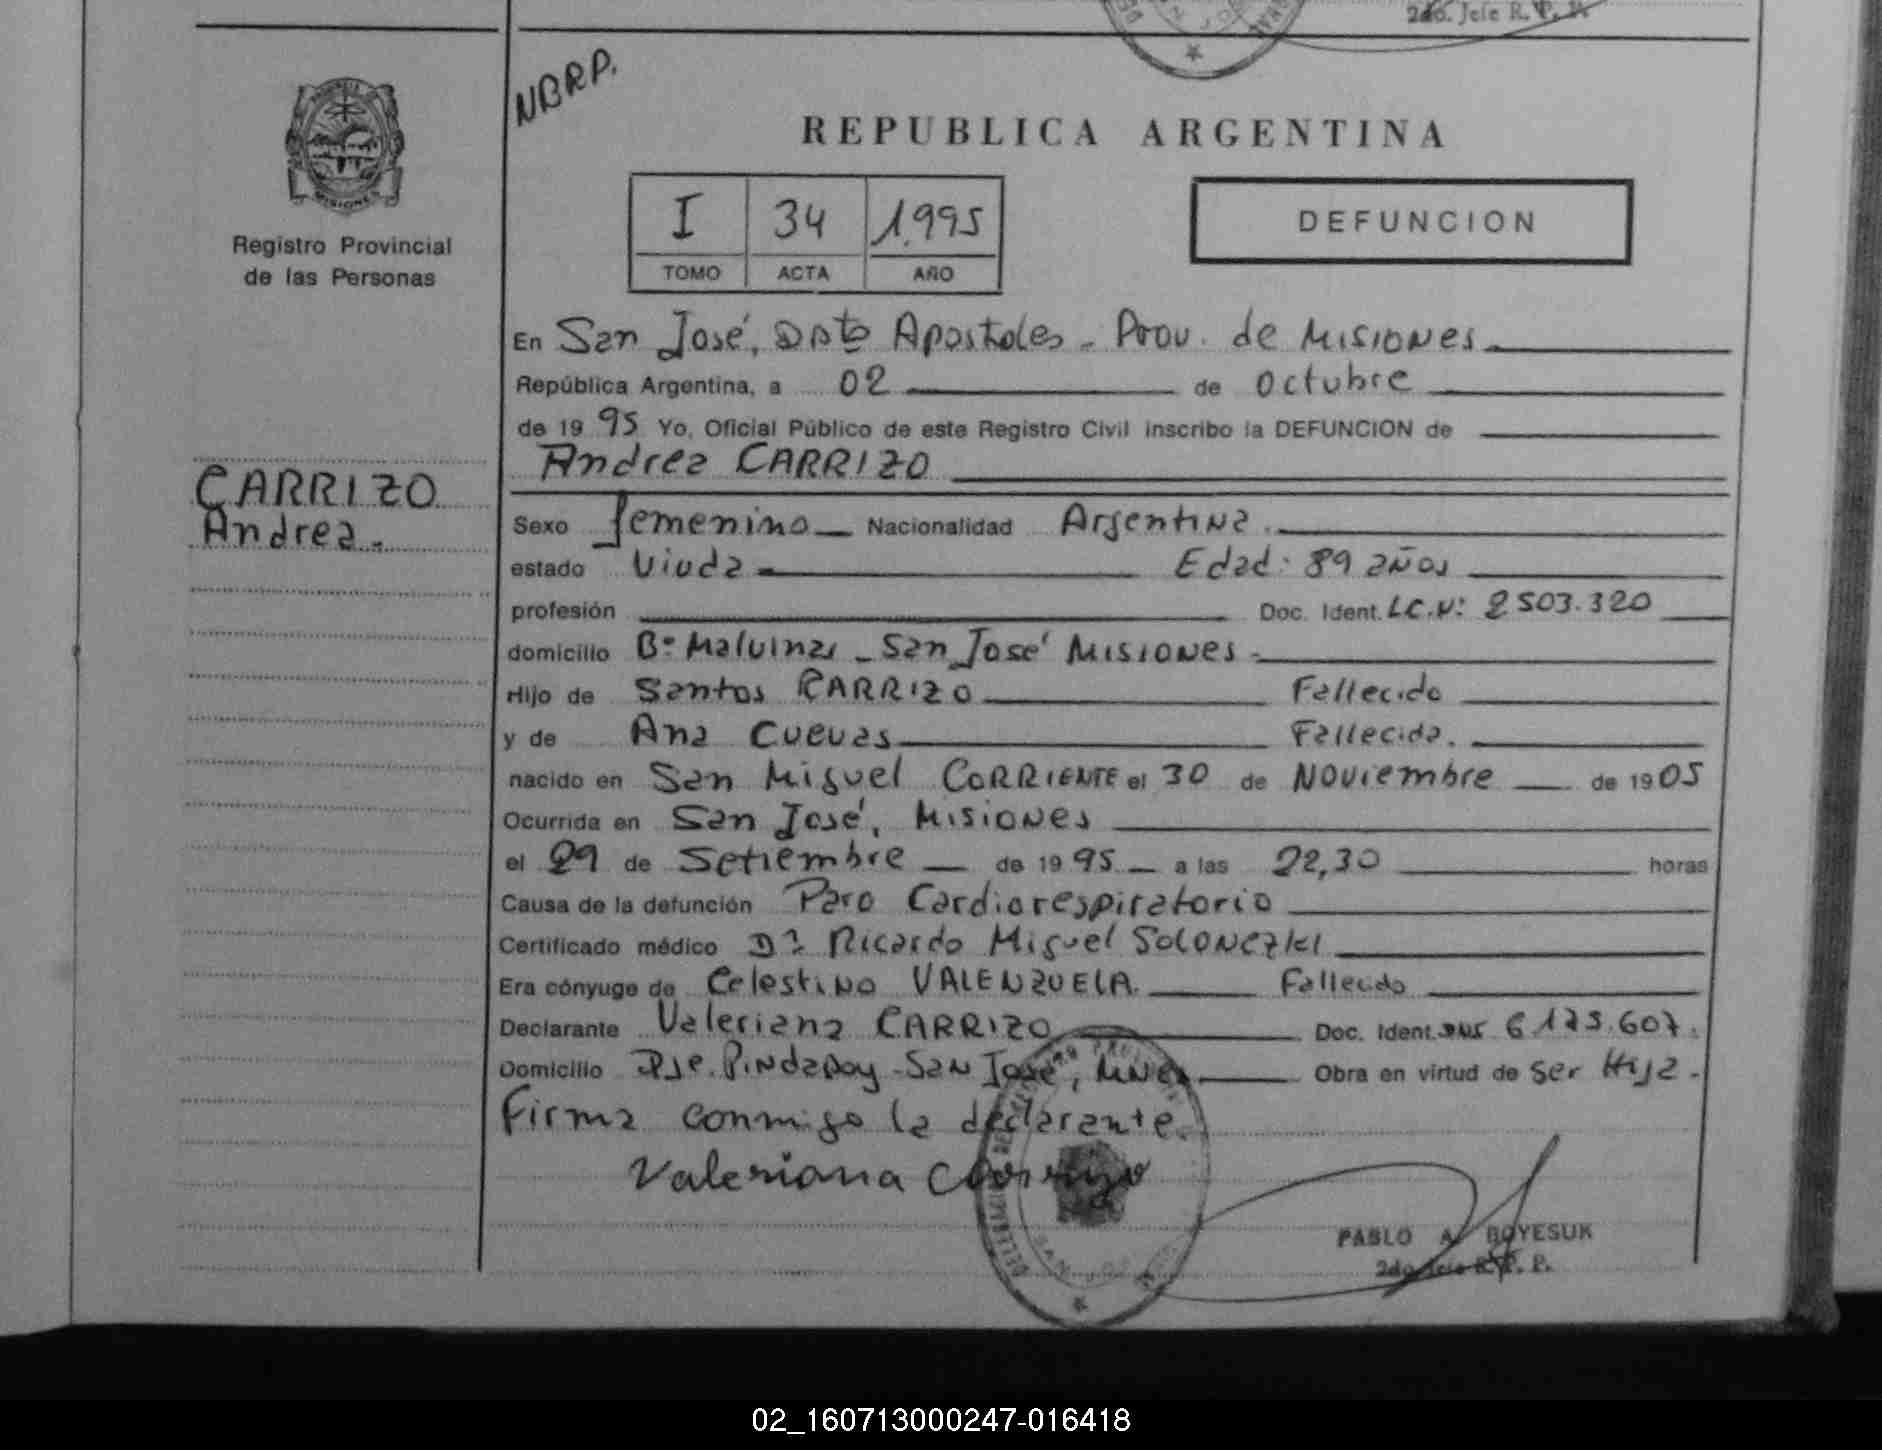 2do. Jefe R. P. P.
NBRP.
REPUBLICA ARGENTINA
MISIONES
Registro Provincial
de las Personas
I 34 1.995
TOMO ACTA AÑO
DEFUNCION
En San José, Dpto Apostoles - Prov. de Misiones
República Argentina, a 02 de octubre
de 1995 Yo, Oficial Público de este Registro Civil inscribo la DEFUNCION de
Andrea CARRIZO
CARRIZO
Andrea.-
Sexo femenino Nacionalidad Argentina.
estado Viuda Edad: 89 años
profesión Doc. Ident. L.C.N: 2503.320
domicilio Bº Malvinas - San José Misiones -
Hijo de Santos CARRIZO Fallecido
y de Ana Cuevas Fallecida.
nacido en San Miguel CORRIENTE el 30 de Noviembre de 1905
Ocurrida en San José, Misiones
el 29 de Setiembre de 1995 a las 22,30 horas
Causa de la defunción Paro Cardiorespiratorio
Certificado médico Dr. Ricardo Miguel
Era cónyuge de Celestino VALENZUELA. Fallecido
Declarante Valeriana CARRIZO Doc. Ident. DNI 6.
Domicilio Pje. Pindapoy - San José, Mnes Obra en virtud de ser Hija.
Firma conmigo la declarante.
Valeriana Carrizo
PABLO A. BOYESUK
2do. Jefe R. P. P.
02_160713000247-016418